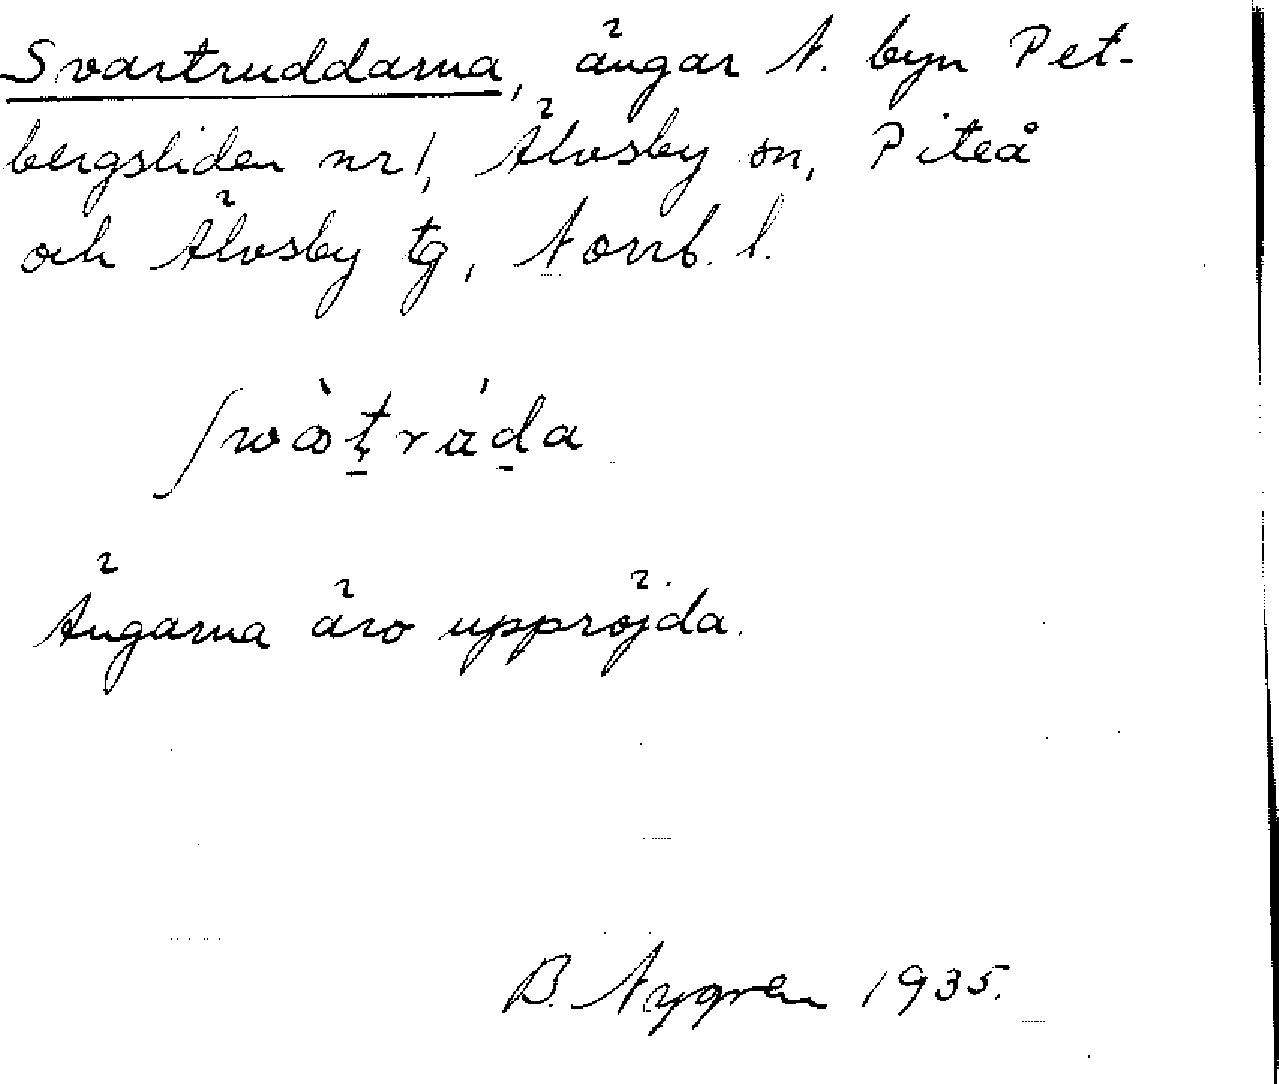 Svartruddarna, ängar N. byn Pet-
bergsliden nr 1, Älvsby sn, Piteå
och Älvsby tg, Norrb. l.
Ängarna äro uppröjda.
B. Nygren 1935.